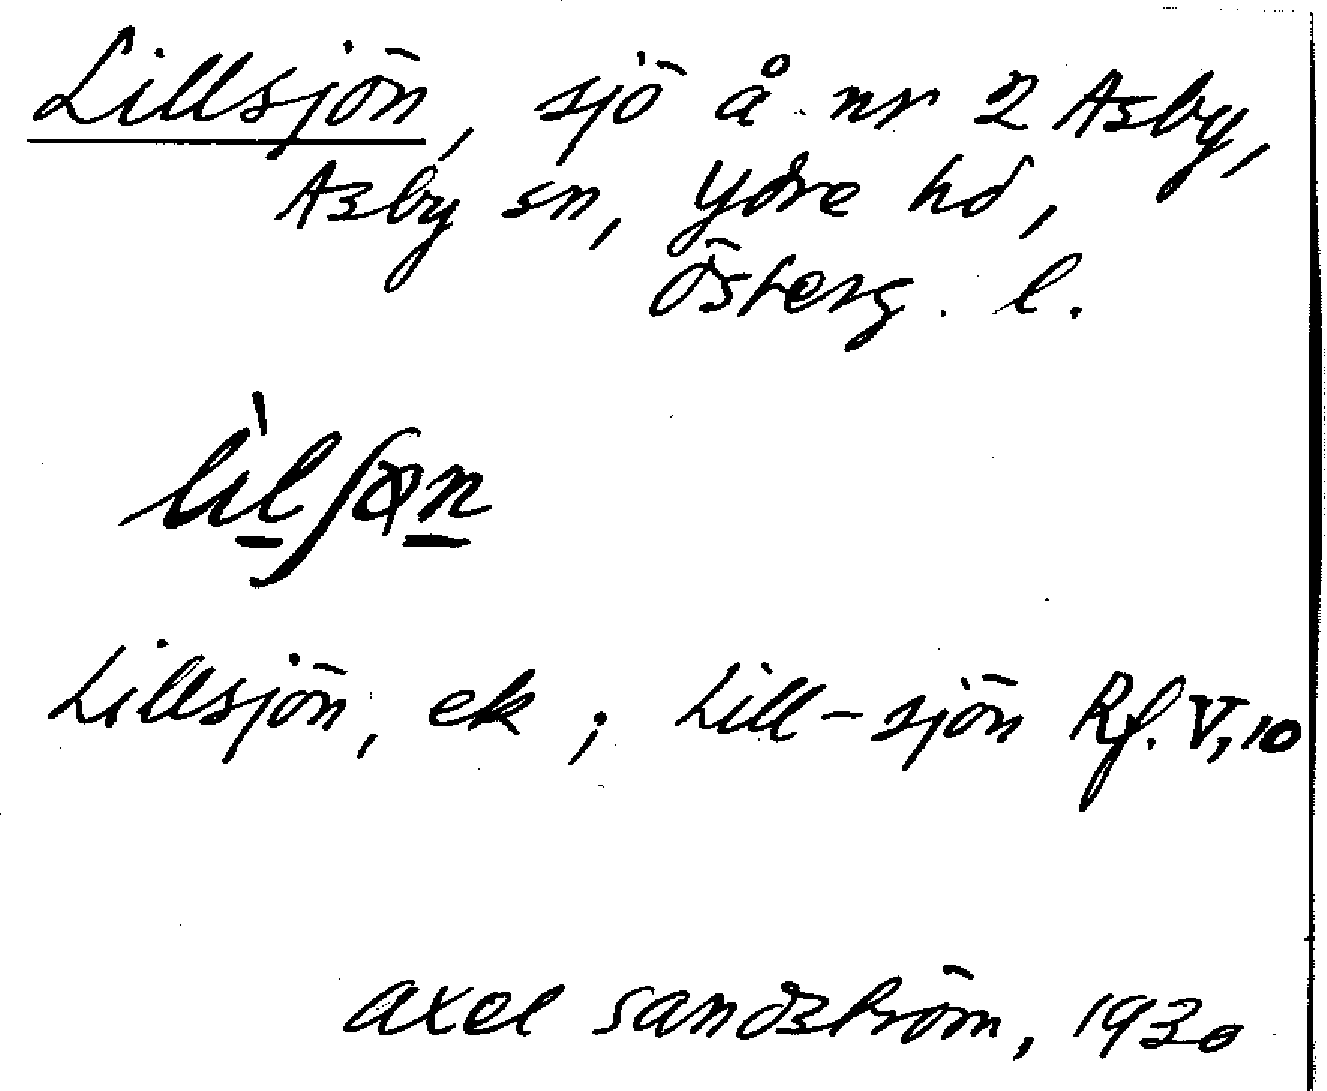 Lillsjön, sjö å nr 2 Asby,
Asby sn, Ydre hd,
Österg. l.
Lillsjön, ek ; Lill-sjön Rf. V, 10
Axel Sandström, 1930